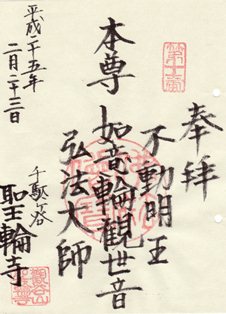 奉拝
不動明王
本尊 如意輪觀世音
弘法大師
平成二十五年
二月二十三日
千駄ヶ谷
聖輪寺